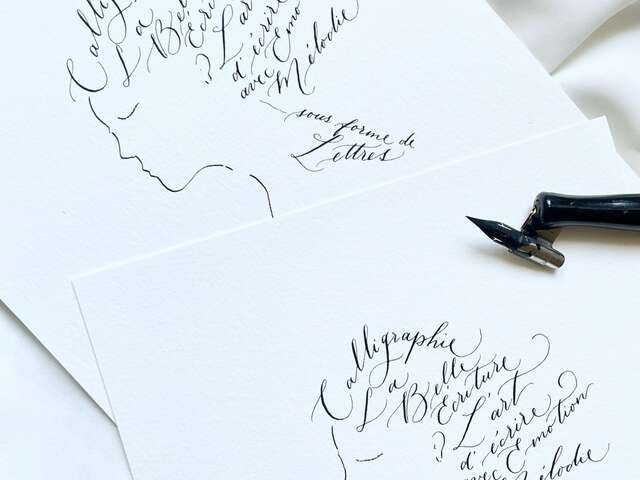 Calligr
La Bell
Écri
? L'ar
d'écrire
avec Emo
Mélodie
sous forme de
Lettres
Calligraphie
La Belle
Écriture
? L'art ?
d'écrire
avec Emotion
Mélodie